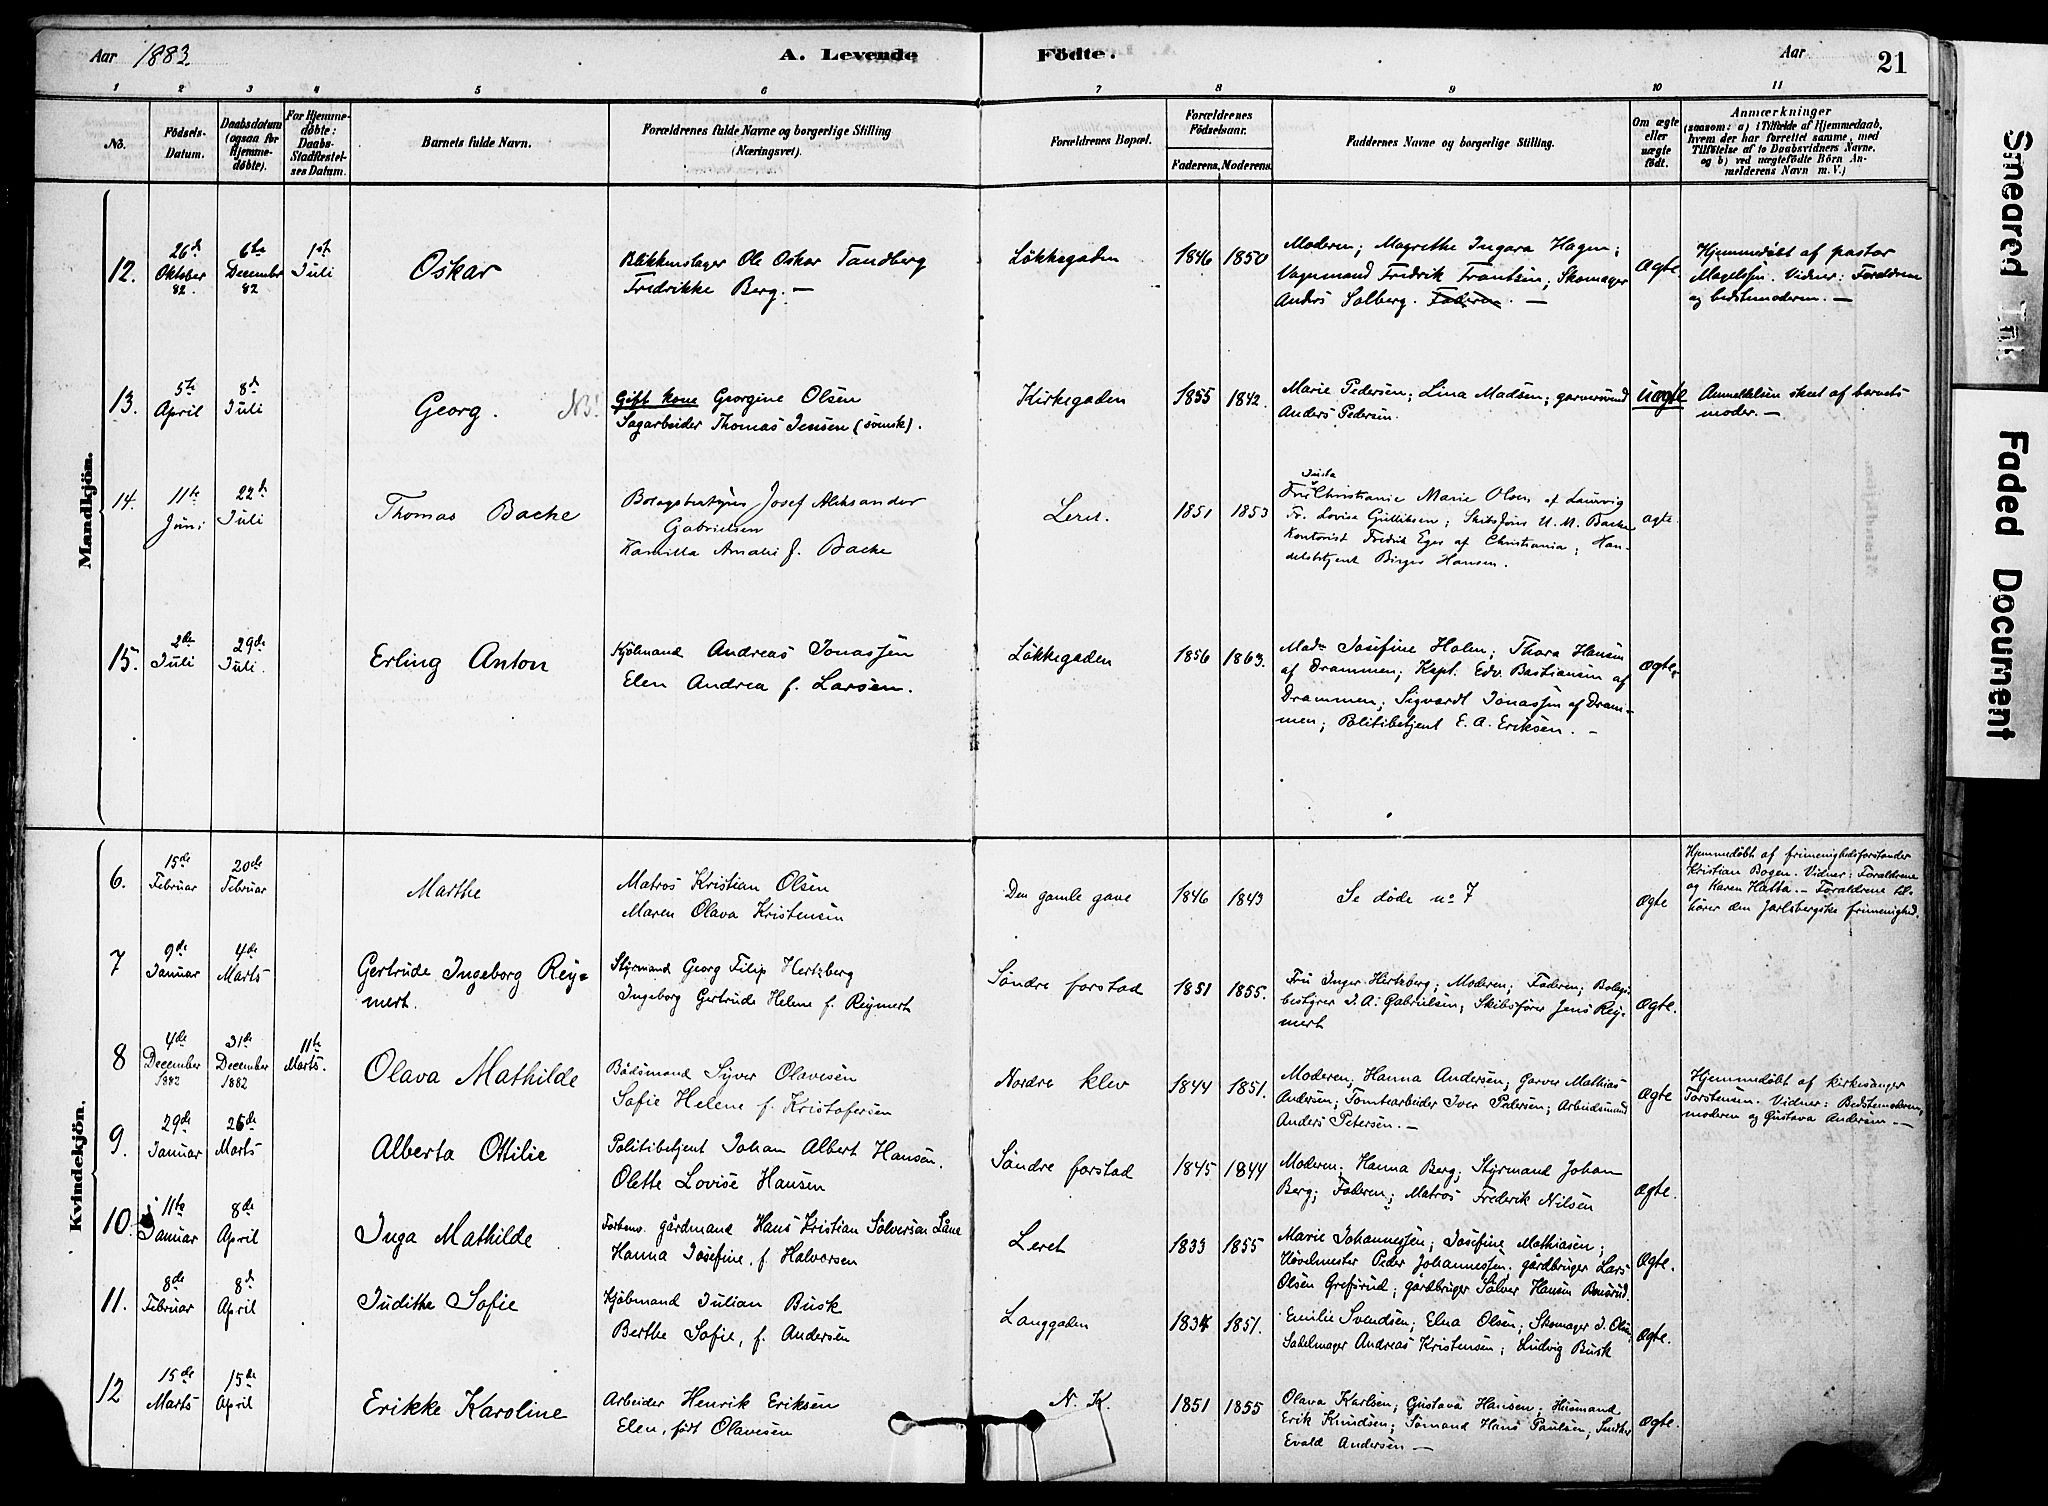 Aar 1883.
A. Levende Födte.
Aar
21
1 2 3 4 5 6 7 8 9 10 11
No.
Födsels-Datum.
Daabsdatum (ogsaa for Hjemmedöbte).
For Hjemmedöbte: Daabs-Stadfæstelses Datum.
Barnets fulde Navn.
Forældrenes fulde Navne og borgerlige Stilling (Næringsvei).
Forældrenes Bopæl.
Forældrenes Födselsaar.
Faderens. Moderens.
Faddernes Navne og borgerlige Stilling.
Om ægte eller uægte födt.
Anmærkninger
(saasom: a) i Tilfælde af Hjemmedaab, hvem der har forrettet samme, med Tilföielse af to Daabsvidners Navne. og b) ved uægtefödte Börn Anmelderens Navn m. V.)
Mandkjön.
12. 26de Oktober 82. 6te December 82 1ste Juli
Oskar
Blikkenslager Ole Oskar Tandberg
Fredrikke Berg. —
Løkkegaden 1846 1850
Moderen; Magrethe Ingara Hagen;
Vognmand Fredrik Frantsen; Skomager
Andrs Solberg. Faderen. —
Ægte
Hjemmedøbt af pastor
Magelssen. Vidner: Forældrene
og bedstemoderen. —
13. 5te April 8de Juli
Georg. NB!
Gift kone Georgine Olsen
Sagarbeider Thomas Jensen (svensk).
Kirkegaden 1855 1842.
Marie Pedersen; Lina Madsen; garversvend
Anders Pedersen.
Uægte
Anmeldelsen skeet af barnets
moder. —
14. 11te Juni 22de Juli
Thomas Backe
Bolagsbestyrer Josef Aleksander
Gabrielsen
Kamilla Amalie f. Backe
Leret. 1851 1853
Frk Christianie Marie Olsen af Laurvig
Fr. Lovisa Gulliksen; Skibsfører U. M. Backe
Kontorist Fredrik Eger af Christiania; Han-
delsbetjent Birger Hansen.
ægte.
15. 2den Juli 29de Juli.
Erling Anton
Kjøbmand Andreas Jonassen
Elen Andrea f. Larsen.
Løkkegaden 1856 1863.
Madm Josefine Holm; Thora Hansen
af Drammen; Kapt. Edv. Bastiansen af
Drammen; Sigvardt Jonassen af Dram-
men; Politibetjent E. A. Eriksen. —
Ægte.
Kvindekjön.
6. 15de Februar 20de Februar
Marthe
Matros Kristian Olsen
Maren Olava Kristensen
Den gamle gave 1846 1843
Se døde no 7
Ægte
Hjemmedøbt af frimenighedsforstander
Kristian Bogen. Vidner: Forældrene
og Karen Hatta. — Forældrene til-
hører den Jarlsbergske frimenighed.
7 9de Januar 4de Marts
Gertrude Ingeborg Rey-
mert.
Styrmand Georg Filip Hertzberg
Ingeborg Gertrude Helene f. Reymert
Søndre forstad 1851 1855.
Fru Inger Hertzberg; Moderen; Faderen; Bolags-
bestyrer J. A. Gabrielsen; Skibsfører Jens Rey-
mert
Ægte.
8 4de December 1882 31te December 1882 11te Marts.
Olava Mathilde
Bådsmand Syver Olavesen
Sofie Helene f. Kristofersen
Nordre klev 1844 1851.
Moderen; Hanna Andersen; Garver Mathias
Andersen; Tomtearbeider Iver Pedersen; Arbeidsmand
Anders Petersen. —
Ægte
Hjemmedøbt af kirkesanger
Torstensen. Vidner: Bedstemoderen,
moderen og Gustava Andersen. —
9. 29de Januar 26de Marts
Alberta Ottilie
Politibetjent Johan Albert Hansen.
Olette Lovise Hansen
Søndre forstad 1845 1844
Moderen; Hanna Berg; Styrmand Johan
Berg; Faderen; Matros Frederik Nilsen
Ægte.
10. 11te Januar 8de April
Inga Mathilde
Forhenv. gårdmand Hans Kristian Sølversen Låne
Hanna Josefine, f. Halvorsen
Leret 1833 1855
Marie Johannessen; Josefine Mathiasen;
Høvelmester Peder Johannessen. gårdbruger Lars
Olsen Grefsrud; gårdbruger Sølver Hansen Bonsrud.
Ægte.
11. 8de Februar 8de April
Judithe Sofie
Kjøbmand Julian Busk
Berthe Sofie, f. Andersen
Langgaden 1834 1851.
Emilie Svendsen; Elna Olsen; Skomager J. Olsen
Sadelmager Andreas Kristensen; Ludvig Busk
Ægte.
12 15de Marts 15de April
Erikke Karoline
Arbeider Henrik Eriksen
Elen, født Olavesen
N. K. 1851 1855
Olava Karlsen; Gustava Hansen; Husmand
Erik Knudsen; Sømand Hans Paulsen; Snedker
Evald Andersen —
Ægte.
Smeared Ink
Faded Document